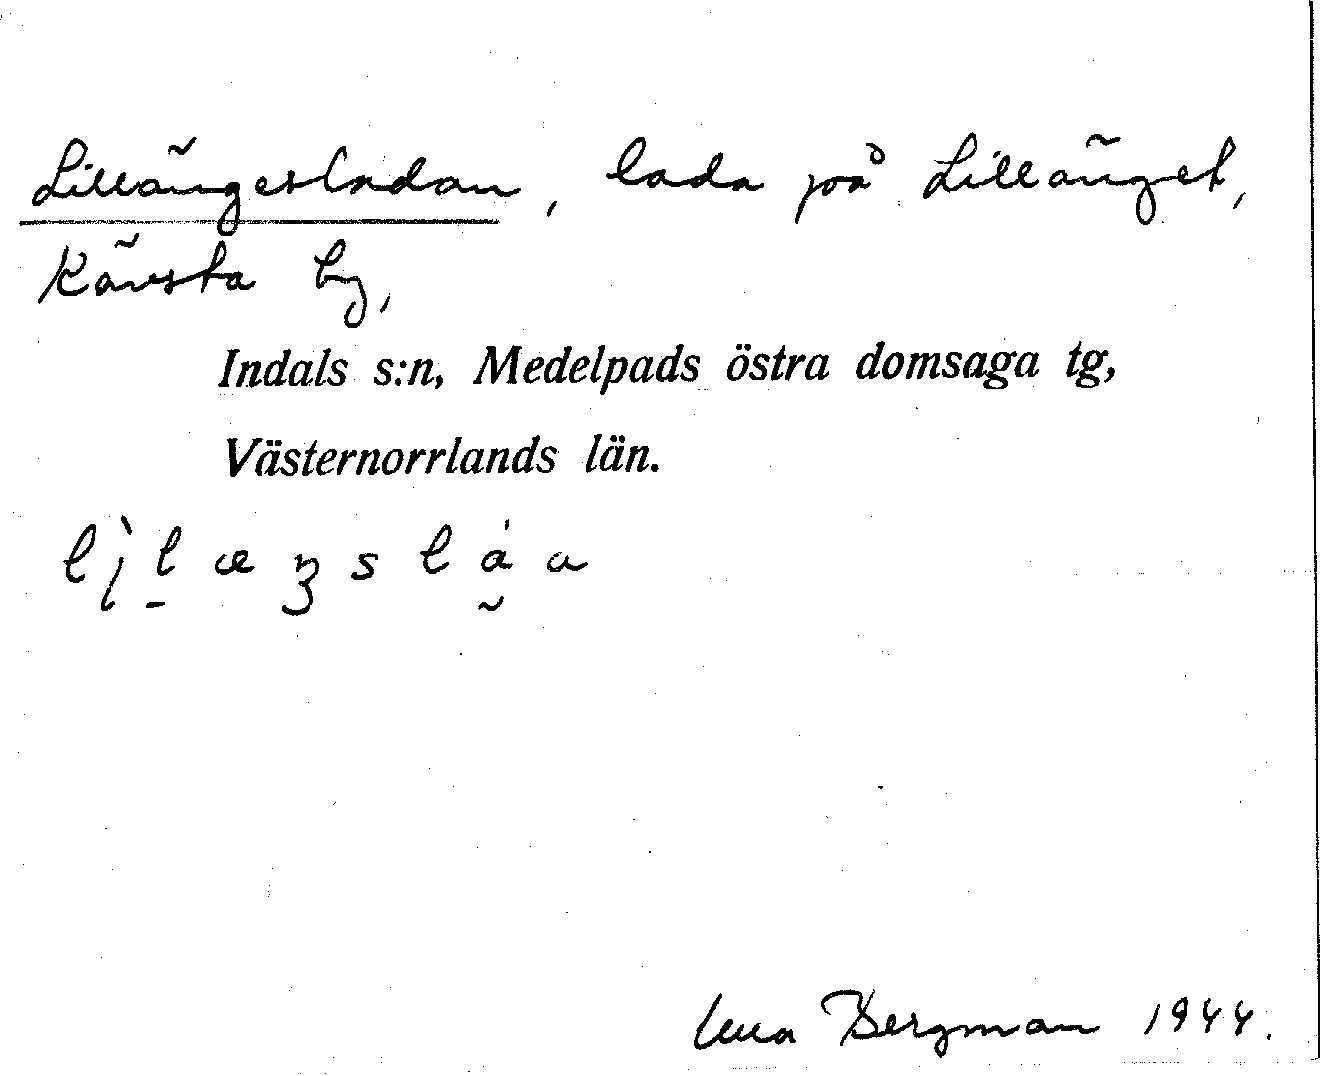 Lillängesladan, lada på Lillänget,
Kävsta by,
Indals s:n, Medelpads östra domsaga tg,
Västernorrlands län.
Bergman 1944.